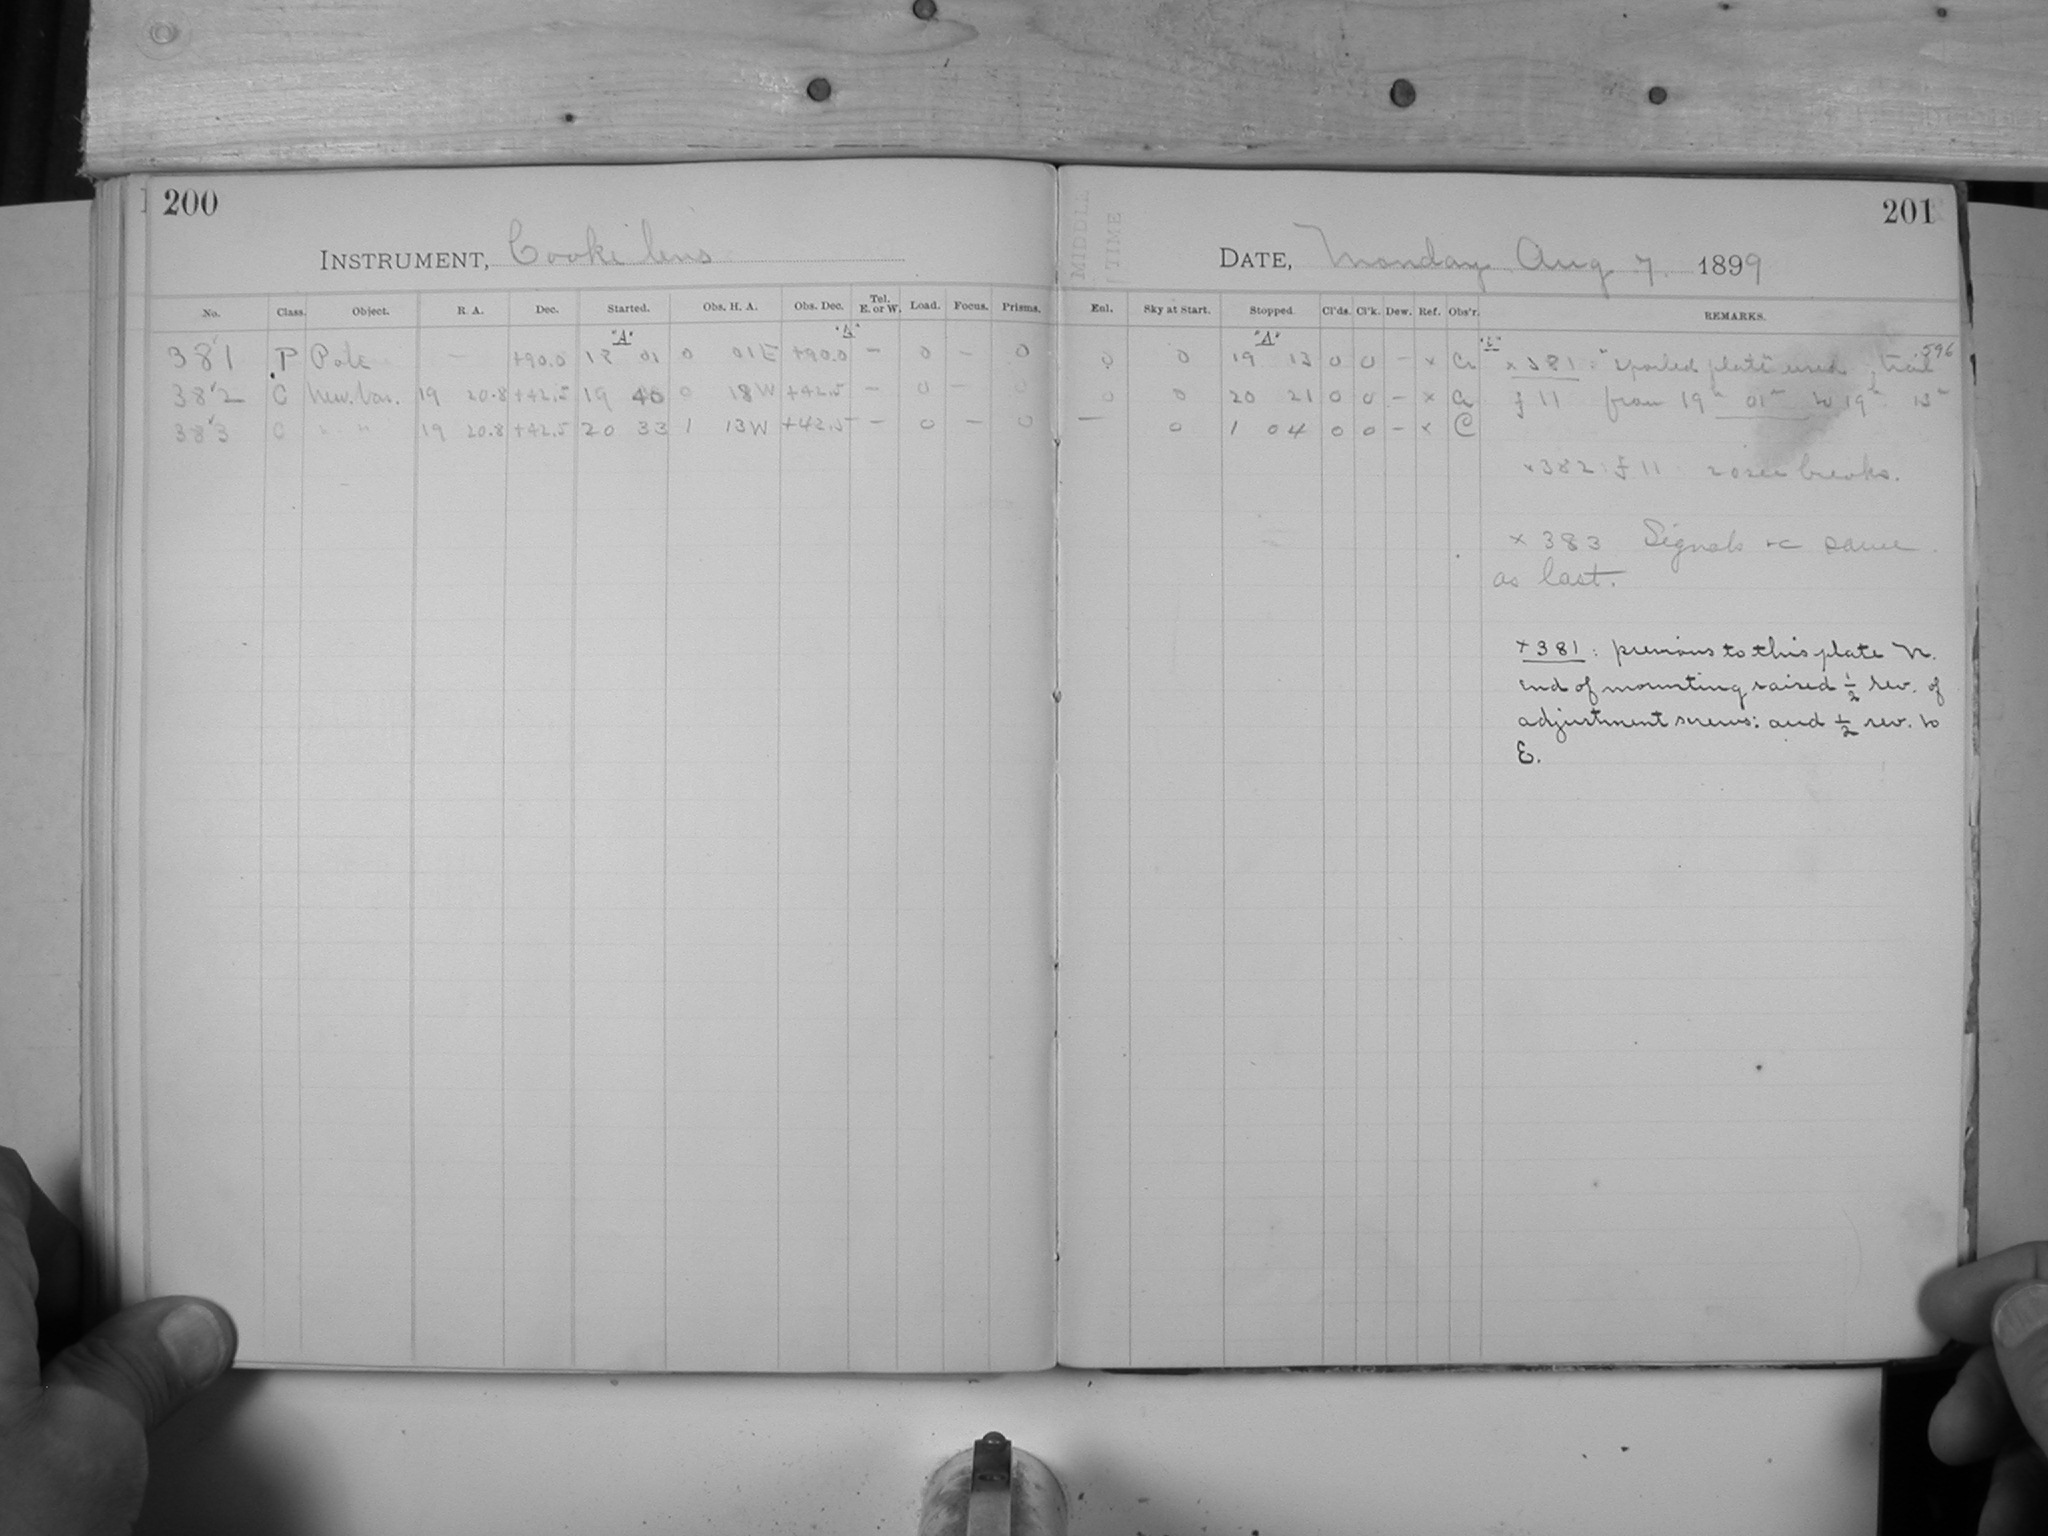 200
INSTRUMENT, Cooke lens
No. Class. Object. R. A. Dec. Started. Obs. H. A. Obs. Dec. Tel. E. or W. Load. Focus. Prisms.
"A"
381 P Pole — +90.0 18 01 0 01E +90.0 — 0 — 0
382 C New. Var. 19 20.8 +42.5 19 40 0 18W +42.5 — 0 — 0
383 C " " 19 20.8 +42.5 20 33 1 13W +42.5 — 0 — 0
201
MIDDLE
TIME
DATE, Monday Aug 7. 1899
Enl. Sky at Start. Stopped. Cl'ds. Cl'k. Dew. Ref. Obs'r. REMARKS.
"A"
0 0 19 13 0 0 — x Cr
0 0 20 21 0 0 — x Cr
— 0 1 04 0 0 — x C
.596
x 381: "spoiled plate" used, trail
f 11 from 19h 01m to 19h 13m
x382: f 11 breaks.
x 383 Signals &c same
as last.
x 381: previous to this plate N.
end of mounting raised 1/2 rev. of
adjustment screws: and 1/2 rev. to
E.